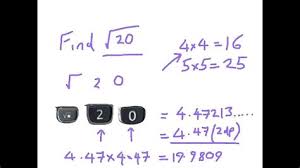 Find √20
4×4=16
5×5=25
√ 2 0
2 0
= 4.47213....
= 4.47 (2dp)
4.47×4.47=19.9809